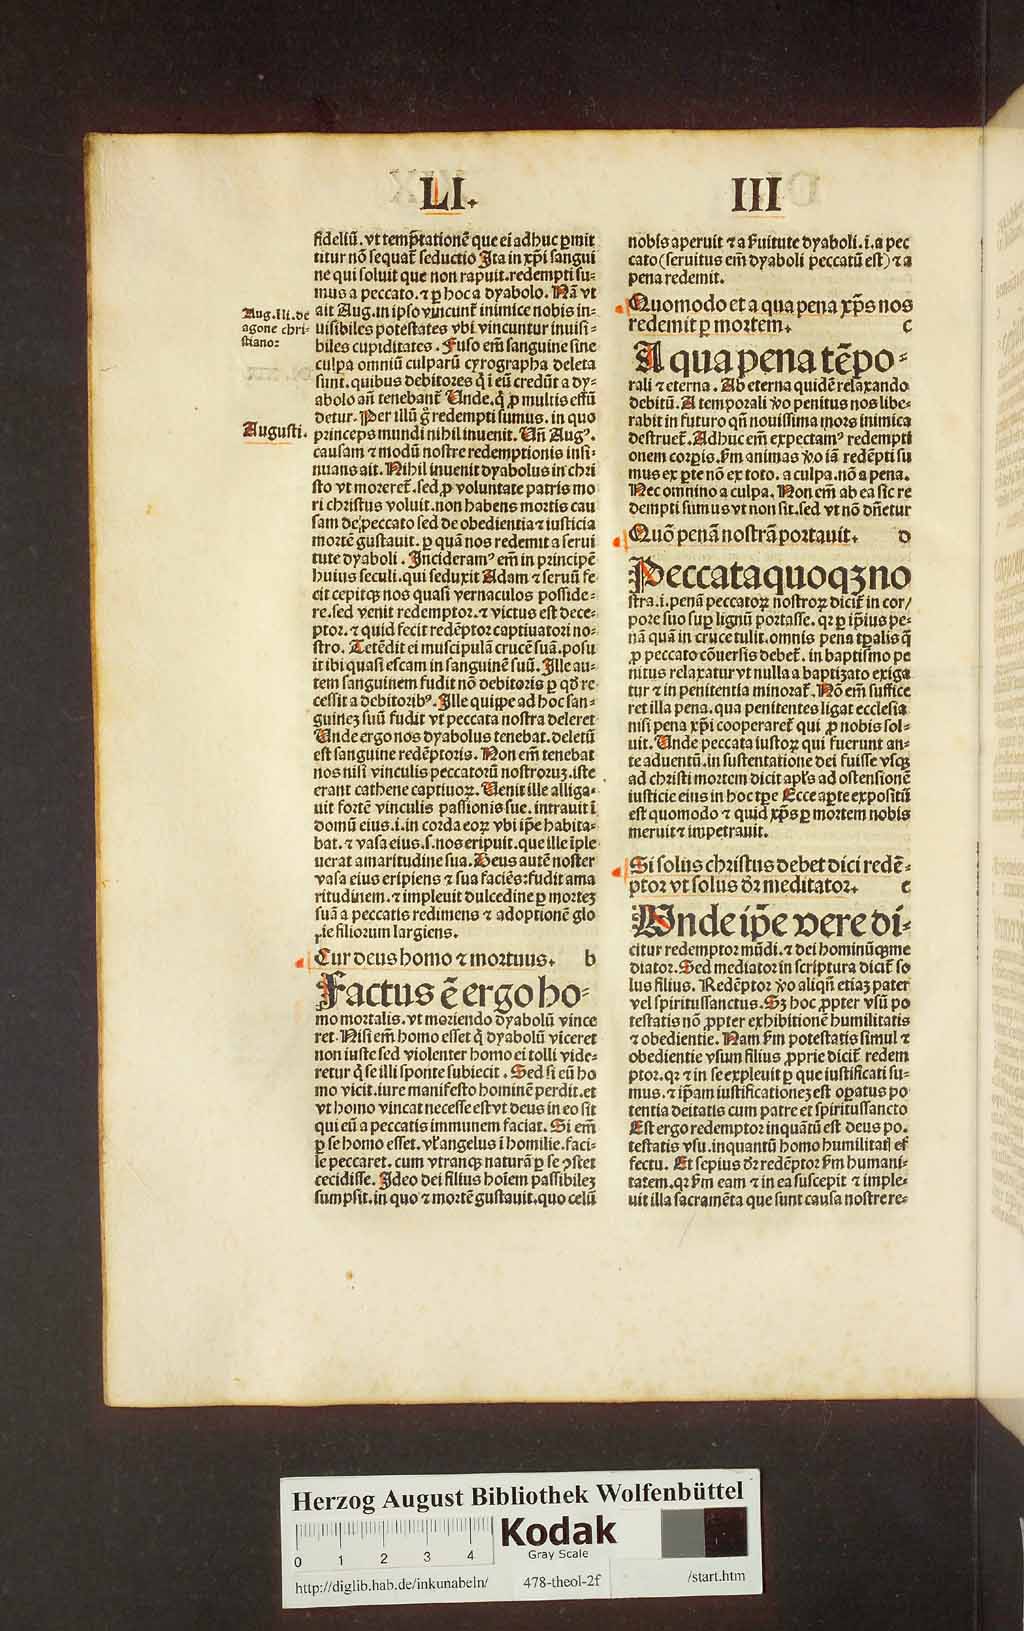 LI.
III
fideliū. vt temp̄tationē que ei adhuc ꝑmit
titur nō sequat᷑ seductio Ita in xp̄i sangui
ne qui soluit que non rapuit. redempti su⸗
mus a peccato. ⁊ ꝑ hoc a dyabolo. Nā vt
Aug. li. de
agone chri⸗
stiano:
ait Aug. in ipso vincunt᷑ inimice nobis in⸗
uisibiles potestates vbi vincuntur inuisi⸗
biles cupiditates. Fuso em̄ sanguine sine
culpa omniū culparū cyrographa deleta
sunt. quibus debitores q̇ i eū credūt a dy⸗
abolo an̄ tenebant᷑ Unde. q̇ ꝓ multis effū
detur. Per illū g̊ redempti sumus. in quo
Augusti.
princeps mundi nihil inuenit. Un̄ Augꝰ.
causam ⁊ modū nostre redemptionis insi⸗
nuans ait. Nihil inuenit dyabolus in chri
sto vt moreret᷑. sed ꝓ voluntate patris mo
ri christus voluit. non habens mortis cau
sam de peccato sed de obedientia ⁊ iusticia
mortē gustauit. ꝑ quā nos redemit a serui
tute dyaboli. Incideramꝰ em̄ in principē
huius seculi. qui seduxit Adam ⁊ seruū fe
cit cepitqꝫ nos quasi vernaculos posside⸗
re. sed venit redemptor. ⁊ victus est dece⸗
ptor. ⁊ quid fecit redēptor captiuatori no⸗
stro. Tetēdit ei muscipulā crucē suā. posu
it ibi quasi escam in sanguinē suū. Ille au⸗
tem sanguinem fudit nō debitoris ꝑ qd̄ re
cessit a debitoribꝰ. Ille quippe ad hoc san⸗
guinez suū fudit vt peccata nostra deleret
Unde ergo nos dyabolus tenebat. deletū
est sanguine redēptoris. Non em̄ tenebat
nos nisi vinculis peccatorū nostroruz. iste
erant cathene captiuoꝝ. Uenit ille alliga⸗
uit fortē vinculis passionis sue. intrauit ī
domū eius. i. in corda eoꝝ vbi ip̄e habita⸗
bat. ⁊ vasa eius. s. nos eripuit. que ille iple
uerat amaritudine sua. Deus autē noster
vasa eius eripiens ⁊ sua faciēs: fudit ama
ritudinem. ⁊ impleuit dulcedine ꝑ mortez
suā a peccatis redimens ⁊ adoptionē glo
rie filiorum largiens.
Cur deus homo ⁊ mortuus. b
Factus ē ergo ho⸗
mo mortalis. vt moriendo dyabolū vince
ret. Nisi em̄ homo esset q̇ dyabolū viceret
non iuste sed violenter homo ei tolli vide⸗
retur q̇ se illi sponte subiecit. Sed si eū ho
mo vicit. iure manifesto hominē perdit. et
vt homo vincat necesse est vt deus in eo sit
qui eū a peccatis immunem faciat. Si em̄
ꝑ se homo esset. vl᷑ angelus i homiīe. faci⸗
le peccaret. cum vtranqꝫ naturā ꝑ se ꝯstet
cecidisse. Ideo dei filius hoīem passibilez
sumpsit. in quo ⁊ mortē gustauit. quo celū
nobis aperuit ⁊ a s̄uitute dyaboli. i. a pec
cato (seruitus em̄ dyaboli peccatū est) ⁊ a
pena redemit.
Quomodo et a qua pena xp̄s nos
redemit ꝑ mortem. c
A qua pena tēpo⸗
rali ⁊ eterna. Ab eterna quidē relaxando
debitū. A temporali v̊o penitus nos libe⸗
rabit in futuro qn̄ nouissima mors inimica
destruet᷑. Adhuc em̄ expectamꝰ redempti
onem corpis. s̄m animas v̊o iā redēpti su
mus ex ꝑte nō ex toto. a culpa. nō a pena.
Nec omnino a culpa. Non em̄ ab ea sic re
dempti sumus vt non sit. sed vt nō dn̄etur
Quō penā nostrā portauit. d
Peccata quoqꝫ no
stra. i. penā peccatoꝝ nostroꝝ dicit᷑ in cor/
pore suo suꝑ lignū portasse. qꝛ ꝑ ip̄ius pe⸗
nā quā in cruce tulit. omnis pena tꝑalis q̄
ꝓ peccato cōuersis debet᷑. in baptismo pe
nitus relaxatur vt nulla a baptizato exiga
tur ⁊ in penitentia minorat᷑. Nō em̄ suffice
ret illa pena. qua penitentes ligat ecclesia
nisi pena xp̄i cooperaret᷑ qui ꝓ nobis sol⸗
uit. Unde peccata iustoꝝ qui fuerunt an⸗
te aduentū. in sustentatione dei fuisse vsqꝫ
ad christi mortem dicit apl̄s ad ostensionē
iusticie eius in hoc tꝑe Ecce aperte expositū
est quomodo ⁊ quid xp̄s ꝑ mortem nobis
meruit ⁊ impetrauit.
Si solus christus debet dici redē⸗
ptor vt solus dr̄ meditator. e
Unde ip̄e vere di⸗
citur redemptor mūdi. ⁊ dei hominūqꝫ me
diator. Sed mediator in scriptura dicit᷑ so
lus filius. Redēptor v̊o aliqn̄ etiaz pater
vel spiritussanctus. Sꝫ hoc ꝓpter vsū po
testatis nō ꝓpter exhibitionē humilitatis
⁊ obedientie. Nam s̄m potestatis simul ⁊
obedientie vsum filius ꝓprie dicit᷑ redem
ptor. qꝛ ⁊ in se expleuit ꝑ que iustificati su⸗
mus. ⁊ ip̄am iustificationez est oꝑatus po
tentia deitatis cum patre et spiritussancto
Est ergo redemptor inquātū est deus po⸗
testatis vsu. inquantū homo humilitatis ef
fectu. Et sepius dr̄ redēptor s̄m humani⸗
tatem. qꝛ s̄m eam ⁊ in ea suscepit ⁊ imple⸗
uit illa sacramēta que sunt causa nostre re⸗
Herzog August Bibliothek Wolfenbüttel
0 1 2 3 4
Kodak
Gray Scale
http://diglib.hab.de/inkunabeln/
478-theol-2f
/start.htm